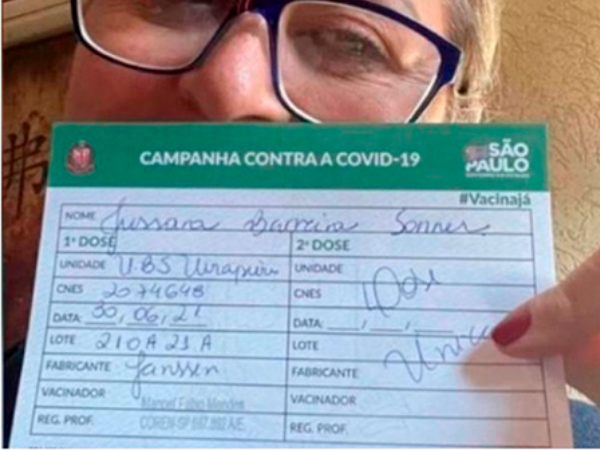 CAMPANHA CONTRA A COVID-19
SÃO PAULO
#Vacinajá
NOME Jussara Barreira
1ª DOSE
2ª DOSE
UNIDADE UBS
UNIDADE
CNES 2074648
CNES
DATA: 30, 06, 21
DATA: __/__/__
LOTE 210A21A
LOTE
FABRICANTE Janssen
FABRICANTE
VACINADOR Manoel Fabio Mendes
VACINADOR
REG. PROF. COREN-SP
REG. PROF.
Dose
Única